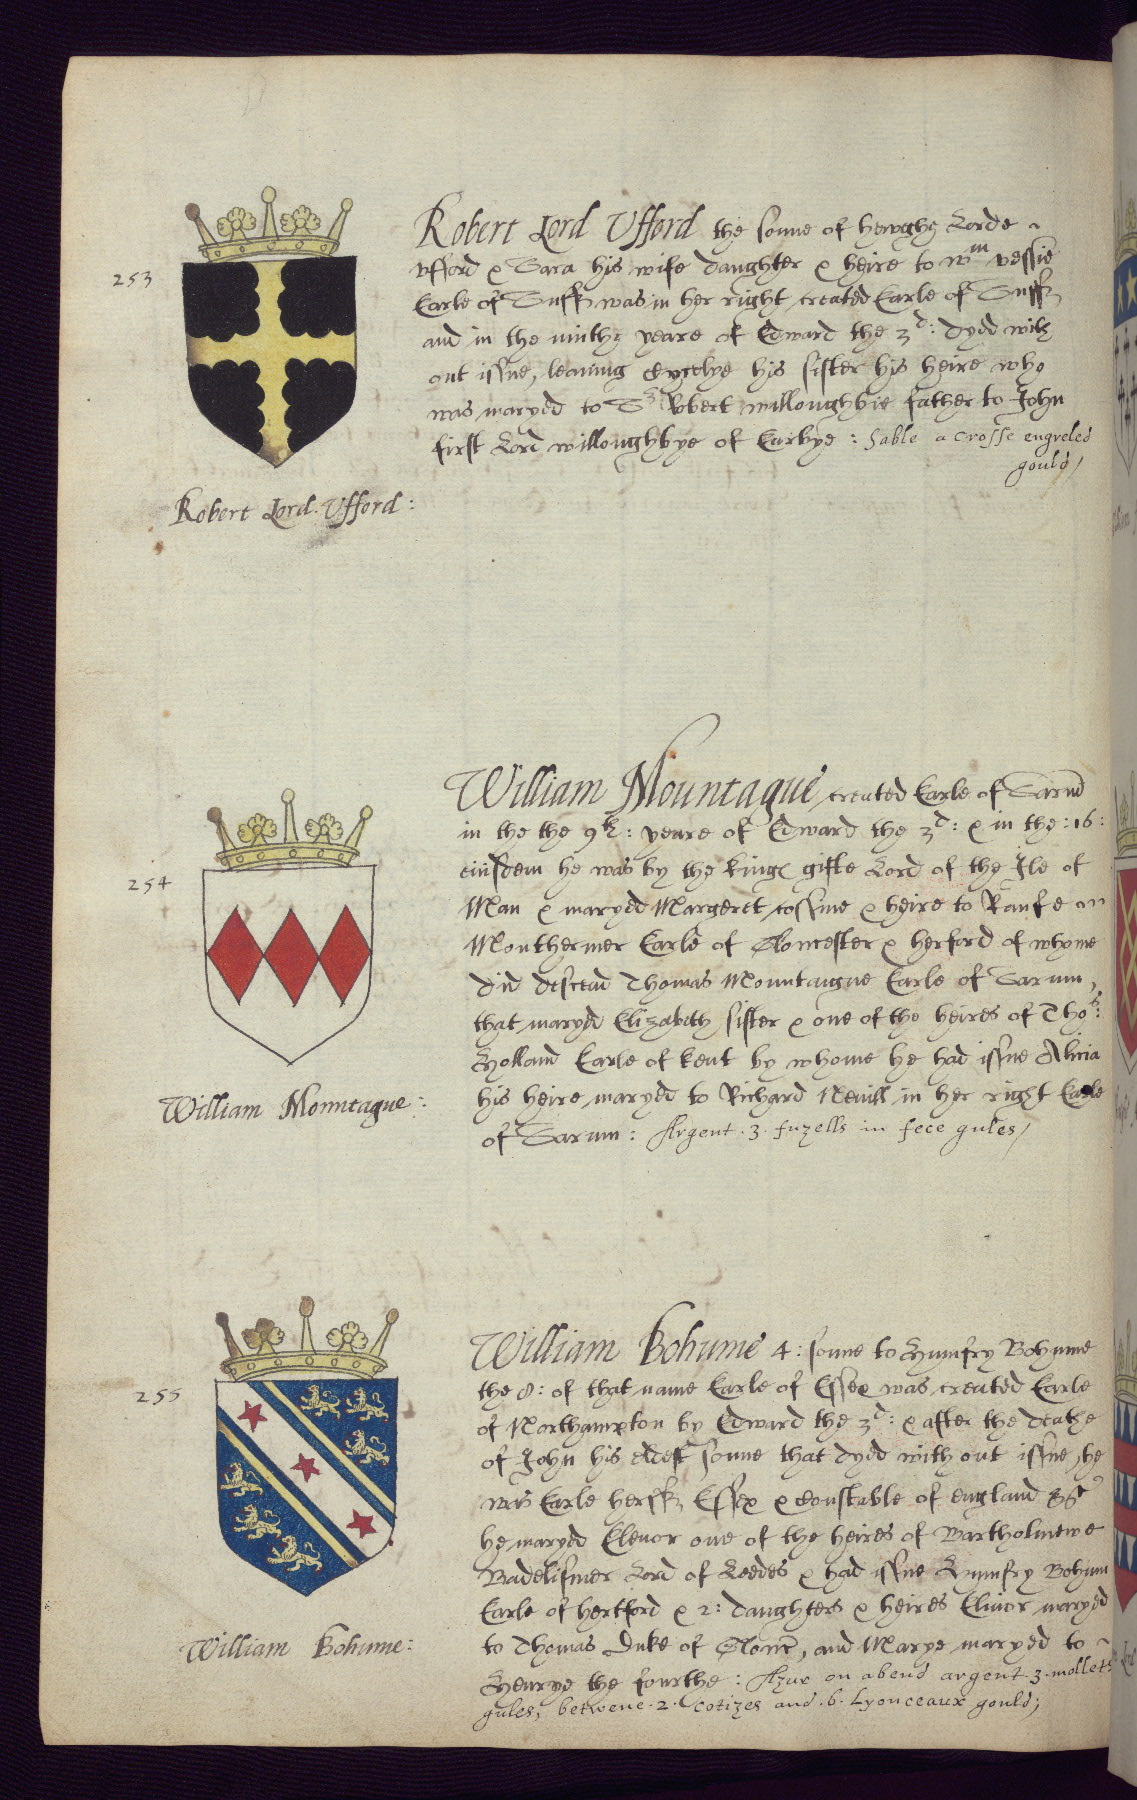 253
Robert Lord Ufford the sonne of hewghe Lorde
ufford & Sara his wife daughter & heire to Wm vessie
Earle of Suff was in her right created Earle of Suff
and in the ninthe yeare of Edward the 3d: dyed with
out issue, leaving his sister his heire who
was maryed to Sr Robert willoughbie father to John
first Lord willoughbye of Earbye : Sable a Crosse engreled
gould/
Robert Lord Ufford:
William Mountague created Earle of Sarum
in the the 9th: yeare of Edward the 3d: & in the :16:
254
eiusdem he was by the kings gifte Lord of the Ile of
Man & maryed Margeret cossine & heire to Raufe
Monthermer Earle of Glocester & herford of whome
did descead Thomas Mountaigue Earle of Sarum,
that maryed Elizabeth sister & one of the heires of Thos:
Holland Earle of Kent by whome he had issue Alicia
his heire maryed to Richard Nevill in her right Earle
of Sarum : Argent .3. fuzells in fece gules/
William Mountague:
William Bohume 4: sonne to Humfry Bohume
the 8: of that name Earle of Essex was created Earle
255
of Northampton by Edward the 3d: & after the deathe
of John his eldest sonne that dyed with out issue, he
was Earle Essex & Constable of England
he maryed Elenor one of the heires of Bartholmewe
Badelismer Lord of Leedes & had issue Humfry Bohum
Earle of hertford & 2: daughters & heires Elinor maryed
to Thomas Duke of Glouc, and Marye maryed to
Henrye the fourthe : Azur on a bend argent .3. mollets
gules, betwene .2. Cotizes and .6. Lyonceaux gould;
William Bohume: